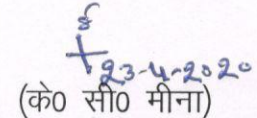 23-4-2020
(के0 सी0 मीना)